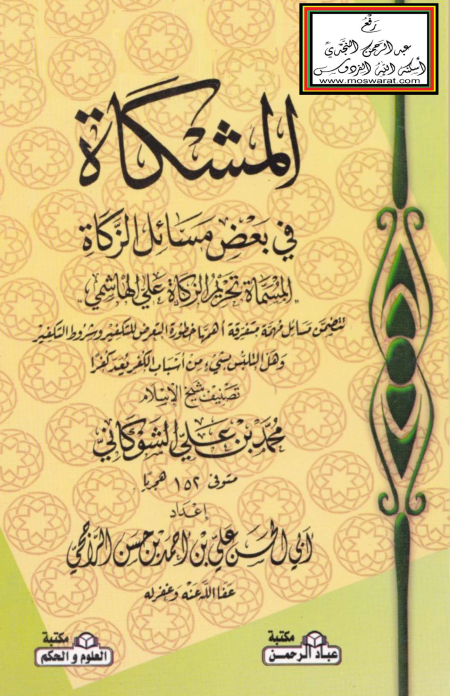 رفع
عبد الرحمن النجدي
أسكنه الله الفردوس
www.moswarat.com
المشكاة
في بعض مسائل الزكاة
"المسماة تحريم الزكاة على الهاشمي"
تتضمن مسائل مهمة متفرقة أهمها خطورة التعرض للتكفير وشروط التكفير
وهل التلبس بشيء من أسباب الكفر يعد كفرا
تصنيف شيخ الإسلام
محمد بن علي الشوكاني
متوفى ١٥٢ هجريا
إعداد
أبي الحسن علي بن احمد بن حسن الرازحي
عفا الله عنه وغفر له
مكتبة
عباد الرحمن
مكتبة
العلوم والحكم